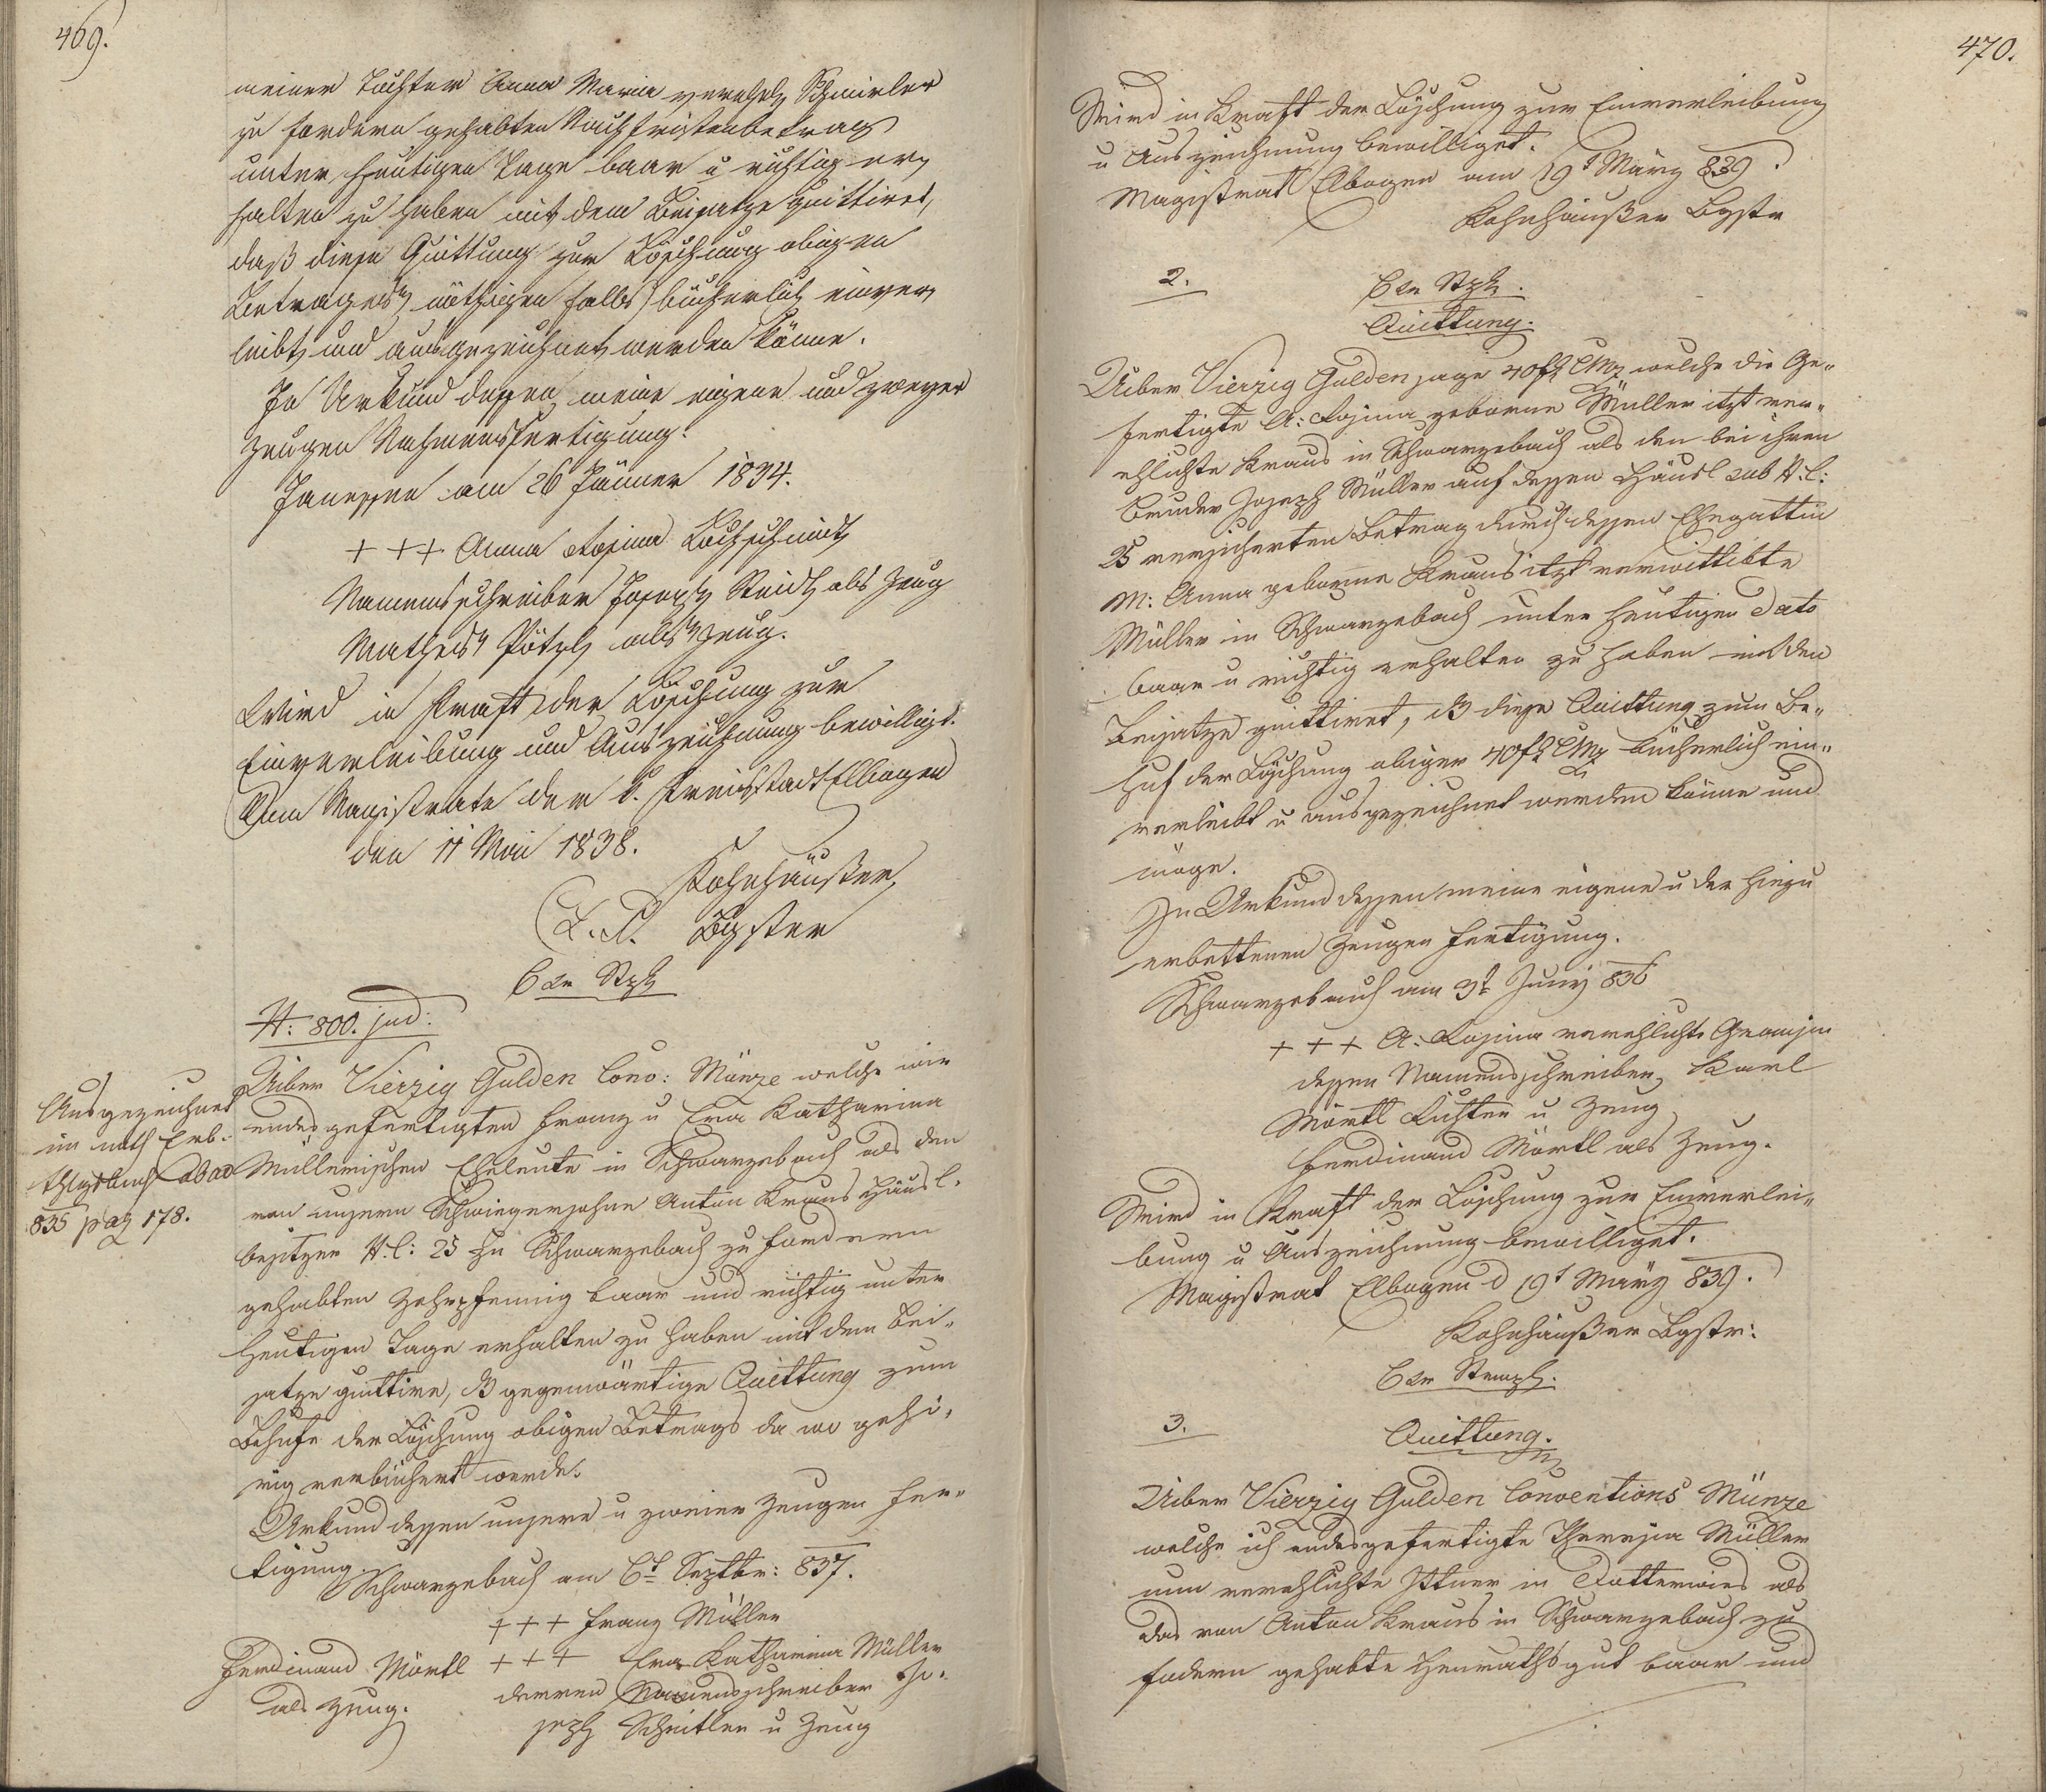 469.
meiner Tochter Anna Maria verehel Schmieler
zu fordern gehabten Nachfristenbetrag
unter heutigen Tage baar u richtig er
halten zu haben mit dem Beisatze quittiret,
daß diese Quittung zur Löschung obigen
Betrages nöthigen falls bücherlich einver
leibt und ausgezeichnet werden könne.
In Urkund dessen meine eigene und zweyer
Zeugen Nahmensfertigung.
Janessen am 26 Jänner 1834.
+++ Anna Rosina Lochschmidt
Namensschreiber Joseph Reidl als Zeug
Mathes Pötzl als Zeug.
Wird in Kraft der Löschung zur
Einverleibung und Auszeichnung bewilligt.
Vom Magistrate der k. Kreisstadt Elbogen
den 11 Mai 1838.
Kohnhäußer
(L. S. Bgster
6 xr Stpl
N: 800. jud:
Ausgezeichnet
im neth Erb.
835 pag 178.
Uiber Vierzig Gulden Conv: Münze welche wir
endesgefertigten Franz u Eva Katharina
Müllerischen Eheleute in Schwarzebach als den
von unsern Schwiegersohne Anton Kraus Häusl.
besitzer N.C: 25 zu Schwarzebach zu fordern
gehabten Zehrpfennig baar und richtig unter
heutigen Tage erhalten zu haben mit dem Bei„
satze quittire, dß gegenwärtige Quittung zum
Behufe der Löschung obigen Betrags da wo gehö„
rig verbüchert werde.
Urkund dessen unsere u zweier Zeugen Fer„
tigung.
Schwarzebach am 6t Septbr: 837.
+++ Franz Müller
Ferdinand Mörtl +++ Eva Katharina Müller
als Zeug. derren Namensschreiber Jo„
seph Scheitler u Zeug
470.
Wird in Kraft der Löschung zur Einverleibung
u Auszeichnung bewilliget.
Magistrat Elbogen am 19t März 839.
Kohnhäußer Bgstr
2. 6 xr Stpl.
Quittung.
Uiber Vierzig Gulden sage 40 f CMz welche die Ge„
fertigte A: Rosina geborne Müller itzt ver„
ehlichte Kraus in Schwarzebach als den bei ihren
Bruder Joseph Müller auf dessen Häusl sub N.C:
25 versicherten Betrag durch dessen Ehegattin
M: Anna geborne Kraus itzt verwittibte
Müller in Schwarzebach unter heutigen Dato
baar u richtig erhalten zu haben mit den
Beisatze quittiret, dß diese Quittung zum Be„
huf der Löschung obiger 40 f CMz bücherlich ein„
verleibt u ausgezeichnet werden könne und
möge.
In Urkund dessen meine eigene u der hiezu
erbettenen Zeugen Fertigung.
Schwarzebach am 3t Juny 836
+++ A: Rosina verehlichte
dessen Namensschreiber Karl
Mörtl Richter u Zeug
Ferdinand Mörtl als Zeug.
Wird in Kraft der Löschung zur Einverlei„
bung u Auszeichnung bewilliget.
Magistrat Elbogen d 19t März 839.
Kohnhäußer Bgstr:
6 xr Stempl.
3. Quittung.
Uiber Vierzig Gulden Conventions Münze
welche ich endesgefertigte Theresia Müller
nun verehlichte Ittner in Dotterwies als
das von Anton Kraus in Schwarzebach zu
fodern gehabte Heuraths gut baar und